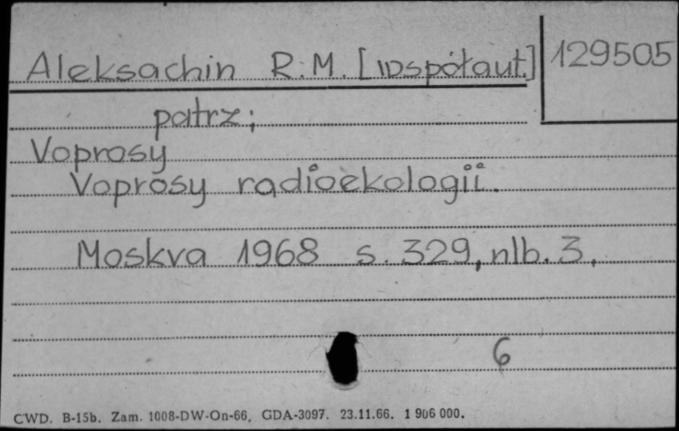 Aleksachin R.M. [współaut.] 129505
patrz;
Voprosy
Voprosy radioekologii.
Moskva 1968 s. 329, nlb. 3.
6
CWD. B-15b. Zam. 1008-DW-On-66. GDA-3097. 23.11.66. 1 906 000.